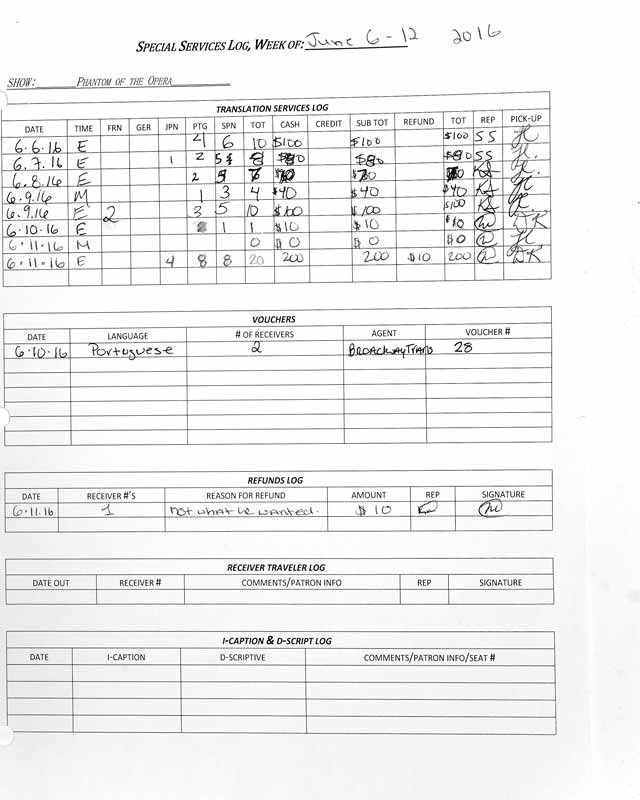 SPECIAL SERVICES LOG, WEEK OF: June 6-12 2016
SHOW: PHANTOM OF THE OPERA
TRANSLATION SERVICES LOG
DATE TIME FRN GER JPN PTG SPN TOT CASH CREDIT SUB TOT REFUND TOT REP PICK-UP
6.6.16 E 4 6 10 $100 $100 $100 SS
6.7.16 E 1 2 5 8 $80 $80 $80 SS
6.8.16 E 2 5 7 $70 $70 70 KS
6.9.16 M 1 3 4 $40 $40 $40 KS
6.9.16 E 2 3 5 10 $100 $100 $100 KS
6.10.16 E 1 1 $10 $10 $10
6.11.16 M 0 $0 $0 $0
6.11.16 E 4 8 8 20 200 200 $10 200
VOUCHERS
DATE LANGUAGE # OF RECEIVERS AGENT VOUCHER #
6.10.16 Portuguese 2 BROADWAYTRANS 28
REFUNDS LOG
DATE RECEIVER #'S REASON FOR REFUND AMOUNT REP SIGNATURE
6.11.16 1 not what he wanted. $10
RECEIVER TRAVELER LOG
DATE OUT RECEIVER # COMMENTS/PATRON INFO REP SIGNATURE
I-CAPTION & D-SCRIPT LOG
DATE I-CAPTION D-SCRIPTIVE COMMENTS/PATRON INFO/SEAT #